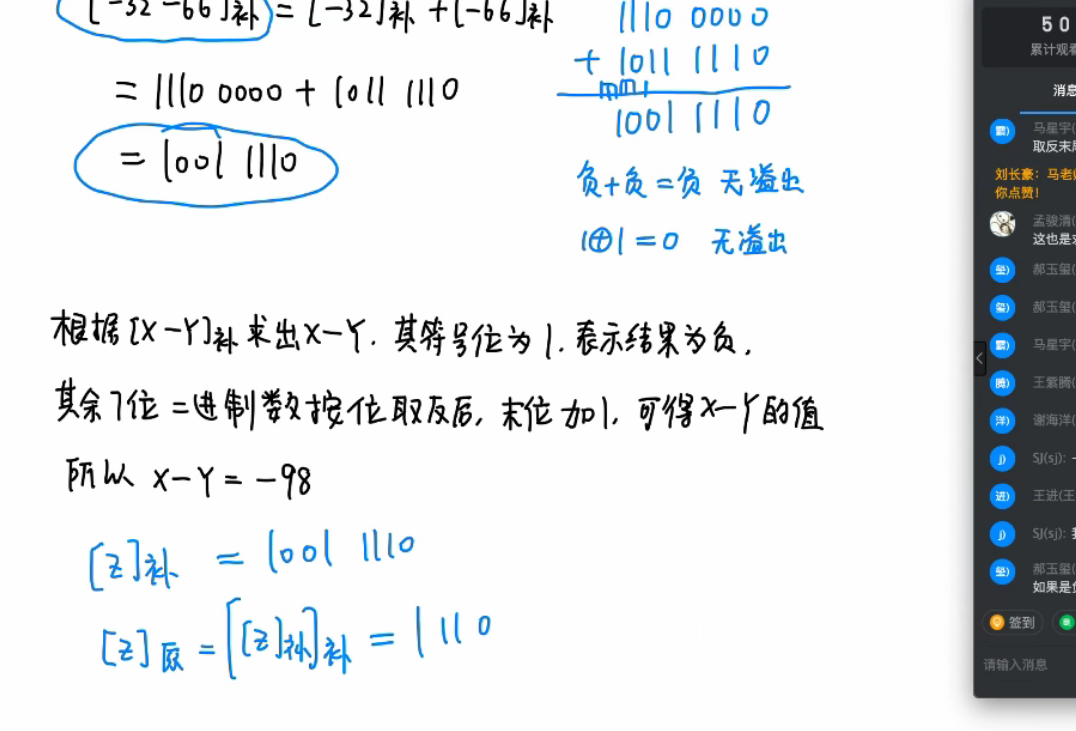 [-32-66]补 = [-32]补 + [-66]补
= 1110 0000 + 1011 1110
= 1001 1110
1110 0000
+ 1011 1110
1001 1110
负+负=负 无溢出
1⊕1=0 无溢出
根据[X-Y]补求出X-Y. 其符号位为1. 表示结果为负,
其余7位二进制数按位取反后, 末位加1, 可得X-Y的值
所以 X-Y = -98
[Z]补 = 1001 1110
[Z]原 = [[Z]补]补 = 1 11 0
50
累计观看
消息
马星宇(
取反末
刘长豪: 马老
你点赞!
孟骏清(
这也是
郝玉玺(
郝玉玺(
马星宇(
王紫腾(
谢海洋(
SJ(sj):
王进(王
SJ(sj):
郝玉玺(
如果是
签到
请输入消息